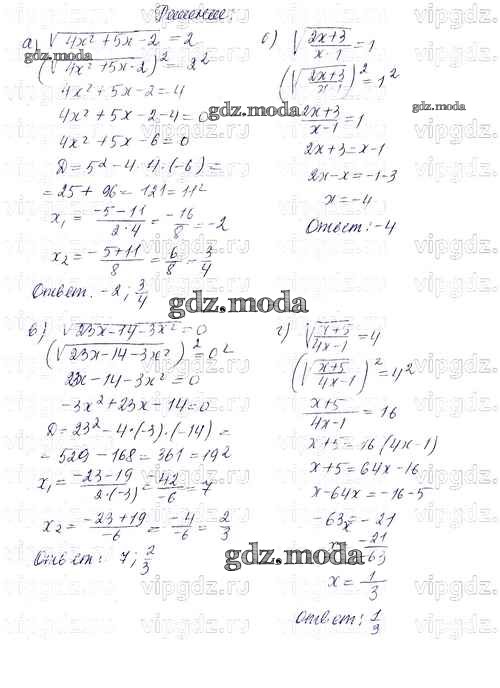 Решение:
а) √4x² + 5x - 2 = 2
(√4x² + 5x - 2)² = 2²
4x² + 5x - 2 = 4
4x² + 5x - 2 - 4 = 0
4x² + 5x - 6 = 0
D = 5² - 4 · 4 · (-6) =
= 25 + 96 = 121 = 11²
x₁ = (-5 - 11)/(2·4) = -16/8 = -2
x₂ = (-5 + 11)/8 = 6/8 = 3/4
Ответ. -2; 3/4
б) √(2x+3)/(x-1) = 1
(√(2x+3)/(x-1))² = 1²
(2x+3)/(x-1) = 1
2x + 3 = x - 1
2x - x = -1 - 3
x = -4
Ответ: -4
в) √23x - 14 - 3x² = 0
(√23x - 14 - 3x²)² = 0²
23x - 14 - 3x² = 0
-3x² + 23x - 14 = 0
D = 23² - 4·(-3)·(-14) =
= 529 - 168 = 361 = 19²
x₁ = (-23 - 19)/(2·(-3)) = -42/-6 = 7
x₂ = (-23 + 19)/-6 = -4/-6 = 2/3
Ответ: 7; 2/3
г) √(x+5)/(4x-1) = 4
(√(x+5)/(4x-1))² = 4²
(x+5)/(4x-1) = 16
x + 5 = 16(4x - 1)
x + 5 = 64x - 16
x - 64x = -16 - 5
-63x = -21
x = -21/-63
x = 1/3
Ответ: 1/9
gdz.moda
gdz.moda
gdz.moda
gdz.moda
gdz.moda
vipgdz.ru